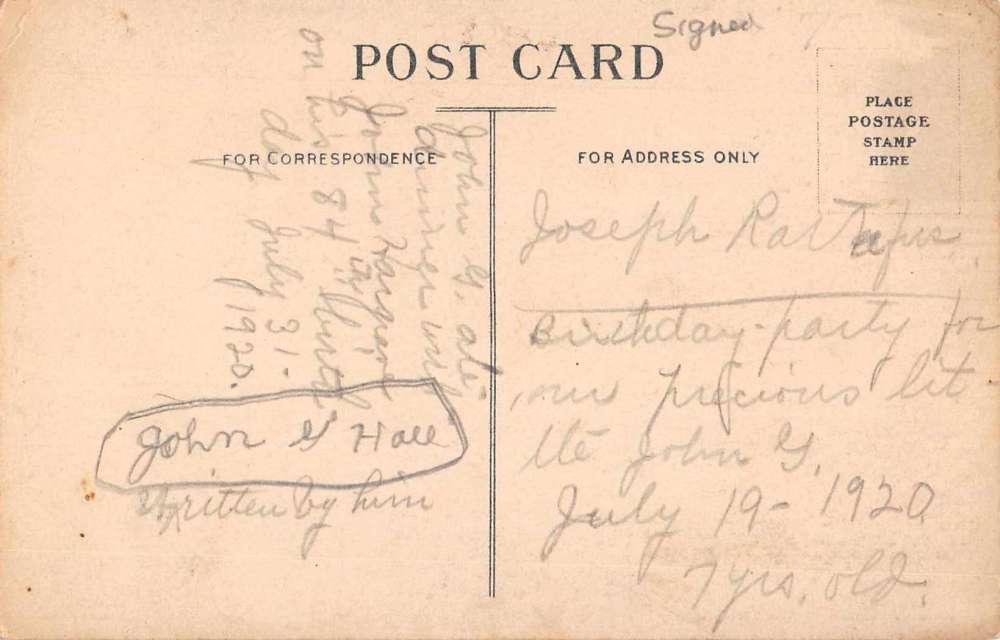 Signed
POST CARD
PLACE
POSTAGE
STAMP
HERE
FOR CORRESPONDENCE
FOR ADDRESS ONLY
John G. ate
dinner with
John
on his 84th birth
day July 31-
1920.
John G Hall
written by him
Joseph
Birthday-party for
our precious lit
tle John G.
July 19-1920
7 yrs. old.